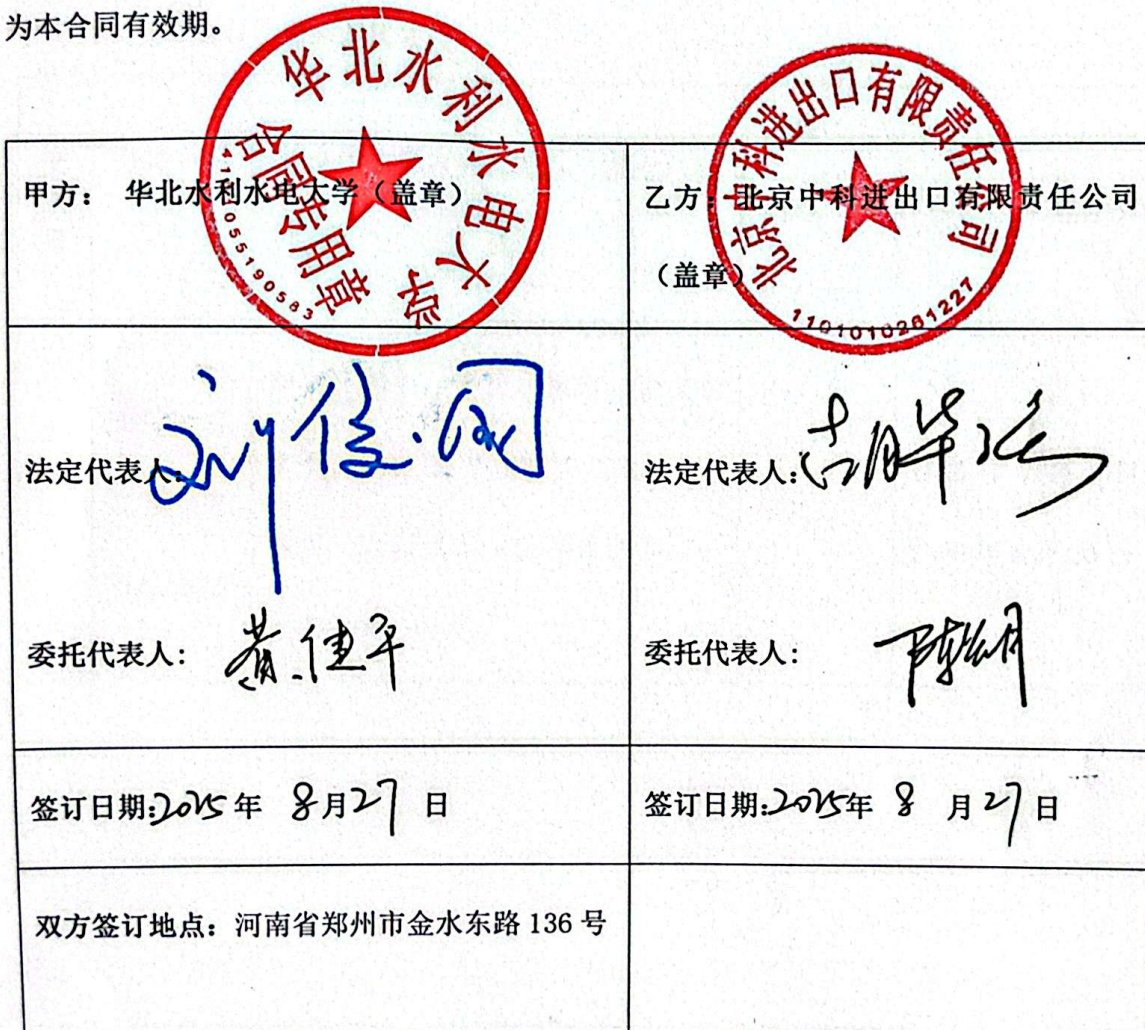 为本合同有效期。
华北水利水电大学
合同专用章
北京中科进出口有限责任公司
1101010261227
甲方： 华北水利水电大学（盖章）
乙方：北京中科进出口有限责任公司
（盖章）
法定代表人：刘俊国
法定代表人：
委托代表人：黄健平
委托代表人：
签订日期:2025年 8月27日
签订日期:2025年 8月27日
双方签订地点：河南省郑州市金水东路 136 号